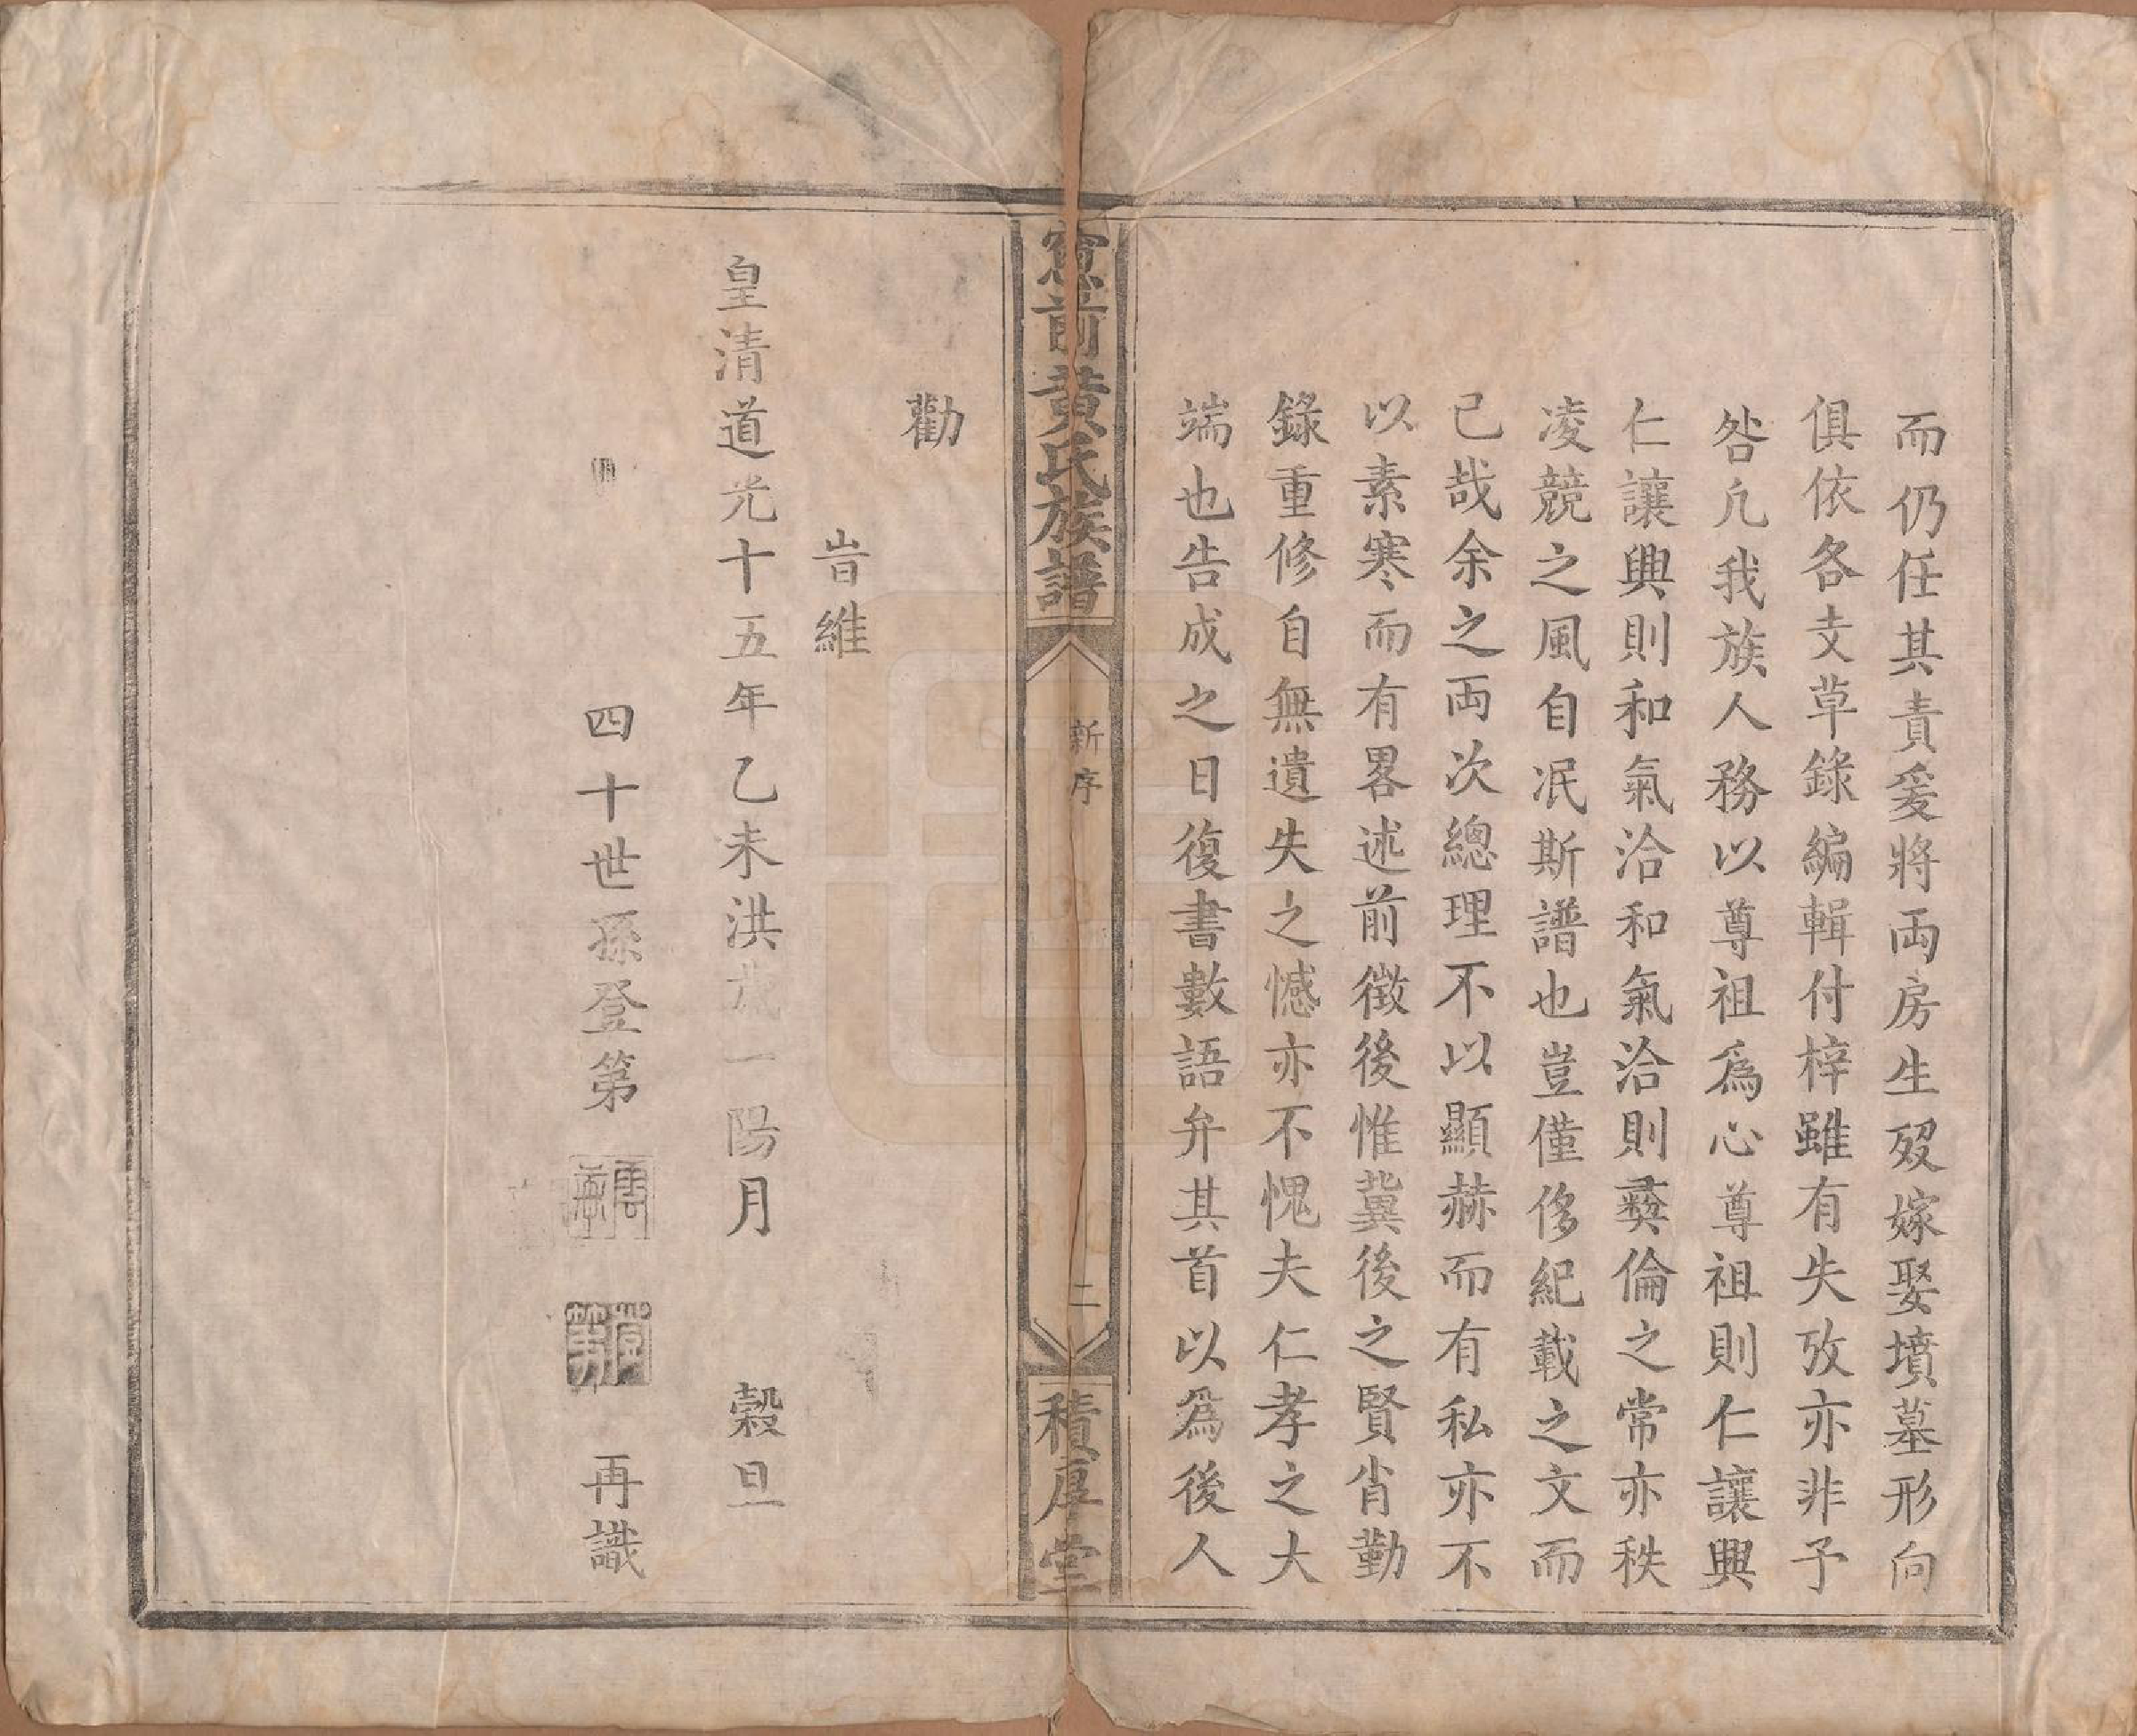 而仍任其責爰將両房生歿嫁娶墳墓形向
俱依各支草錄編輯付梓雖有失攷亦非予
咎凢我族人務以尊祖為心尊祖則仁讓興
仁讓興則和氣洽和氣洽則彜倫之常亦秩
凌競之風自泯斯譜也豈僅侈紀載之文而
已哉余之両次總理不以顯赫而有私亦不
以素寒而有畧述前徵後惟冀後之賢肖勤
錄重修自無遺失之憾亦不愧夫仁孝之大
端也告成之日復書數語弁其首以為後人
窻前黄氏族譜
新序
二
積厚堂
勸
旹維
皇清道光十五年乙未洪歲一陽月 穀旦
四十世孫登第 再識
登第